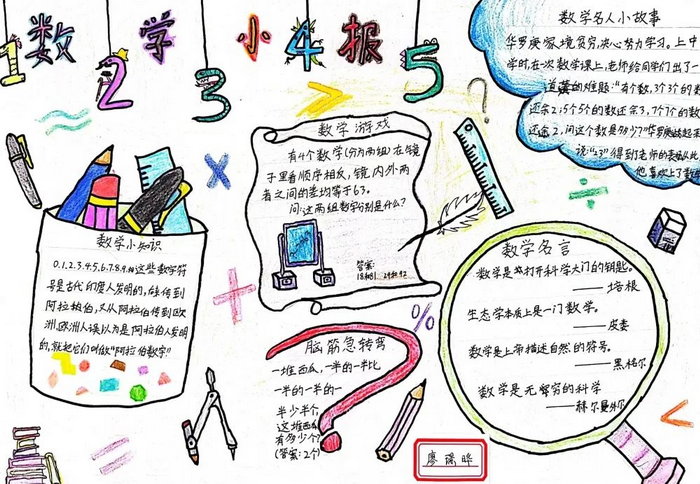 1数2学3小4报5
数学名人小故事
华罗庚家境贫穷,决心努力学习。上中
学时,在一次数学课上,老师给同学们出了一
道著名的难题:"有个数,3个3个的数
还余2,5个5个的数还余3,7个7个的数
还余2,问这个数是多少?"华罗庚站起来
说:"23"得到了老师的表扬从此,
他喜欢上了数学
?
数学游戏
有4个数学(分为两组)在镜
子里看顺序相反,镜内外两
者之间的差均等于63。
问:这两组数字分别是什么?
答案:
18和81 29和92
数学小知识
0.1.2.3.4.5.6.7.8.9.这些数学符
号是古代印度人发明的,后传到
阿拉伯,又从阿拉伯传到欧
洲,欧洲人误以为是阿拉伯人发明
的,就把它们叫做"阿拉伯数字"
数学名言
数学是打开科学大门的钥匙。
——培根
生态学本质上是一门数学。
——皮娄
数学是上帝描述自然的符号。
——黑格尔
数学是无穷的科学
——赫尔曼外尔
%
脑筋急转弯
一堆西瓜,一半的一半比
一半的一半的一
半少半个
这堆西瓜
有多少个?
(答案:2个)